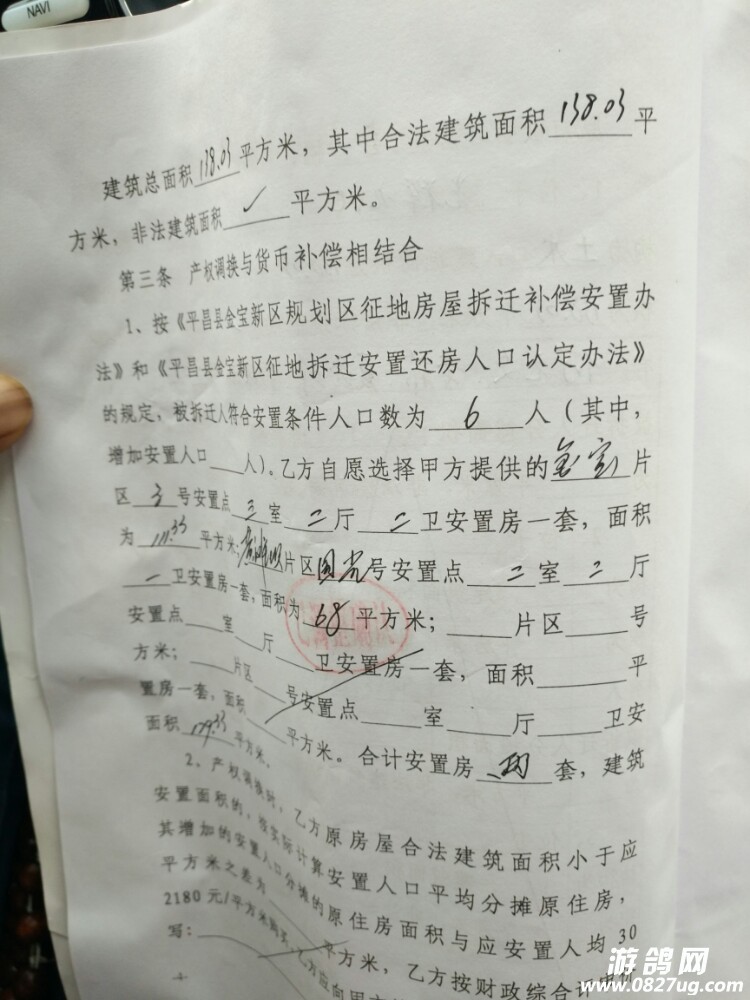 NAVI
建筑总面积138.03平方米，其中合法建筑面积138.03平
方米，非法建筑面积✓平方米。
第三条 产权调换与货币补偿相结合
1、按《平昌县金宝新区规划区征地房屋拆迁补偿安置办
法》和《平昌县金宝新区征地拆迁安置还房人口认定办法》
的规定，被拆迁人符合安置条件人口数为 6 人（其中，
增加安置人口___人）。乙方自愿选择甲方提供的金宝片
区 3 号安置点 三 室 二 厅 二 卫安置房一套，面积
为 111.33 平方米；片区国光号安置点 二 室 二 厅
一 卫安置房一套，面积为 68 平方米；____片区____号
安置点____室____厅____卫安置房一套，面积____平
方米；____片区____号安置点____室____厅____卫安
置房一套，面积____平方米。合计安置房 两 套，建筑
面积 179.33 平方米。
2、产权调换时，乙方原房屋合法建筑面积小于应
安置面积的，按实际计算安置人口平均分摊原住房，
其增加的安置人口分摊的原住房面积与应安置人均30
平方米之差为____平方米，乙方按财政综合计
2180元/平方米购买，乙方应向甲方
写：
游鸽网
www.0827ug.com